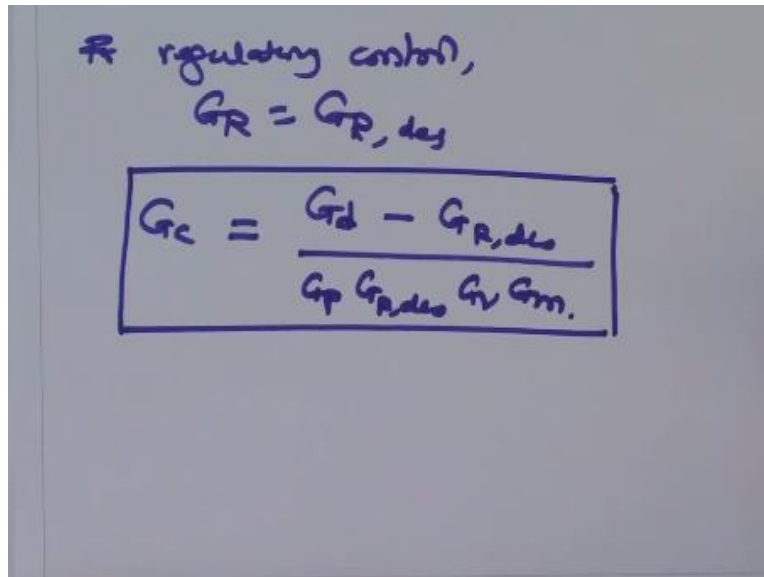 * regulatory control,
GR = GR, des
Gc = Gd - GR,des
Gp GR,des Gv Gm.